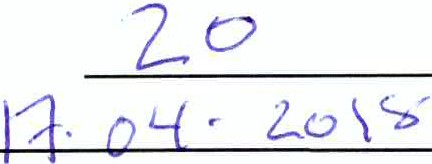 20
17.04.2018